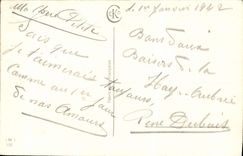 Ma chère Petite
Sais que
Je t'aimerais toujours,
Comme au 1er jour
de nos Amours
1er Janvier 1922
Bons doux
Baisers de la
Haye-Aubrée
René Dubois